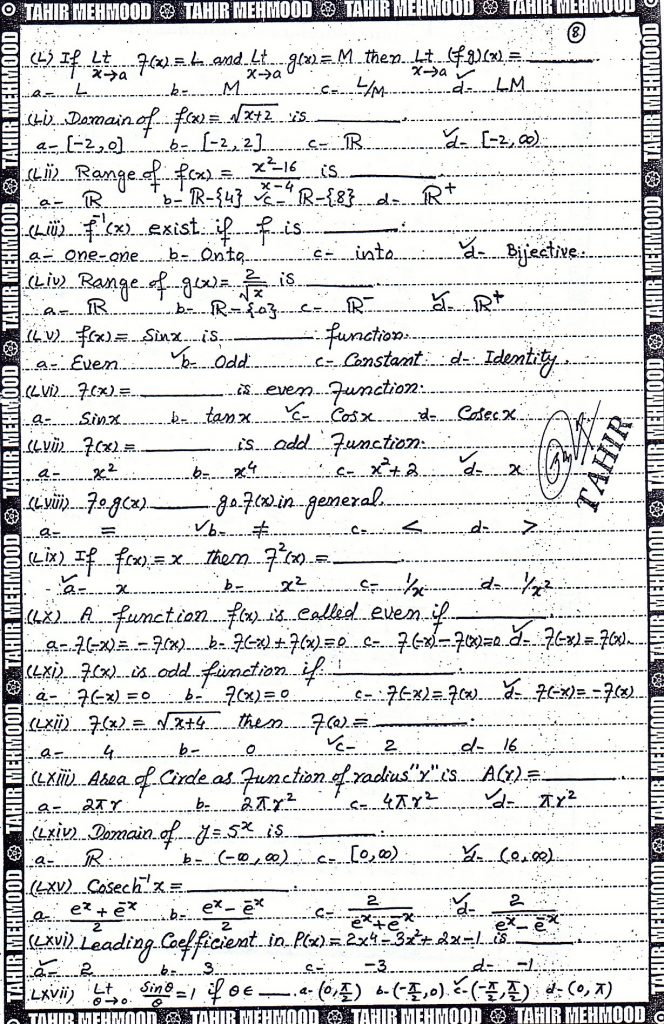 TAHIR MEHMOOD TAHIR MEHMOOD TAHIR MEHMOOD TAHIR MEHMOOD
8
(L) If Lt x→a f(x) = L and Lt x→a g(x) = M then Lt x→a (fg)(x) = ______
a- L b- M c- L/M ✓d- LM
(Li) Domain of f(x) = √x+2 is ______.
a- [-2,0] b- [-2,2] c- ℝ ✓d- [-2,∞)
(Lii) Range of f(x) = x²-16 / x-4 is ______
a- ℝ b- ℝ-{4} ✓c- ℝ-{8} d- ℝ⁺
(Liii) f⁻¹(x) exist if f is ______.
a- one-one b- Onto c- into ✓d- Bijective.
(Liv) Range of g(x) = 2/√x is ______
a- ℝ b- ℝ-{0} c- ℝ⁻ ✓d- ℝ⁺
(LV) f(x) = Sinx is ______ function.
a- Even ✓b- Odd c- Constant d- Identity.
(LVi) f(x) = ______ is even function.
a- Sinx b- tanx ✓c- Cosx d- Cosecx
(LVii) f(x) = ______ is odd function.
a- x² b- x⁴ c- x²+2 ✓d- x
TAHIR
(LViii) fog(x) ______ gof(x) in general.
a- = ✓b- ≠ c- < d- >
(Lix) If f(x) = x then f²(x) = ______.
✓a- x b- x² c- 1/x d- 1/x²
(LX) A function f(x) is called even if ______.
a- f(-x) = -f(x) b- f(-x)+f(x)=0 c- f(-x)-f(x)=0 ✓d- f(-x)=f(x).
(LXi) f(x) is odd function if ______.
a- f(-x)=0 b- f(x)=0 c- f(-x)=f(x) ✓d- f(-x)=-f(x)
(LXii) f(x) = √x+4 then f(0) = ______.
a- 4 b- 0 ✓c- 2 d- 16
(LXiii) Area of Circle as Function of radius "r" is A(r) = ______.
a- 2πr b- 2πr² c- 4πr² ✓d- πr²
(LXiv) Domain of y = 5ˣ is ______.
a- ℝ b- (-∞,∞) c- [0,∞) ✓d- (0,∞)
(LXV) Cosech⁻¹x = ______.
a- eˣ+e⁻ˣ / 2 b- eˣ-e⁻ˣ / 2 c- 2 / eˣ+e⁻ˣ ✓d- 2 / eˣ-e⁻ˣ
(LXVi) Leading Coefficient in P(x) = 2x4-3x²+2x-1 is ______
✓a- 2 b- 3 c- -3 d- -1
LXVii) Lt θ→0 Sinθ/θ = 1 if θ∈ ___. a- (0,π/2) b- (-π/2,0) ✓c- (-π/2,π/2) d- (0,π)
TAHIR MEHMOOD TAHIR MEHMOOD TAHIR MEHMOOD TAHIR MEHMOOD